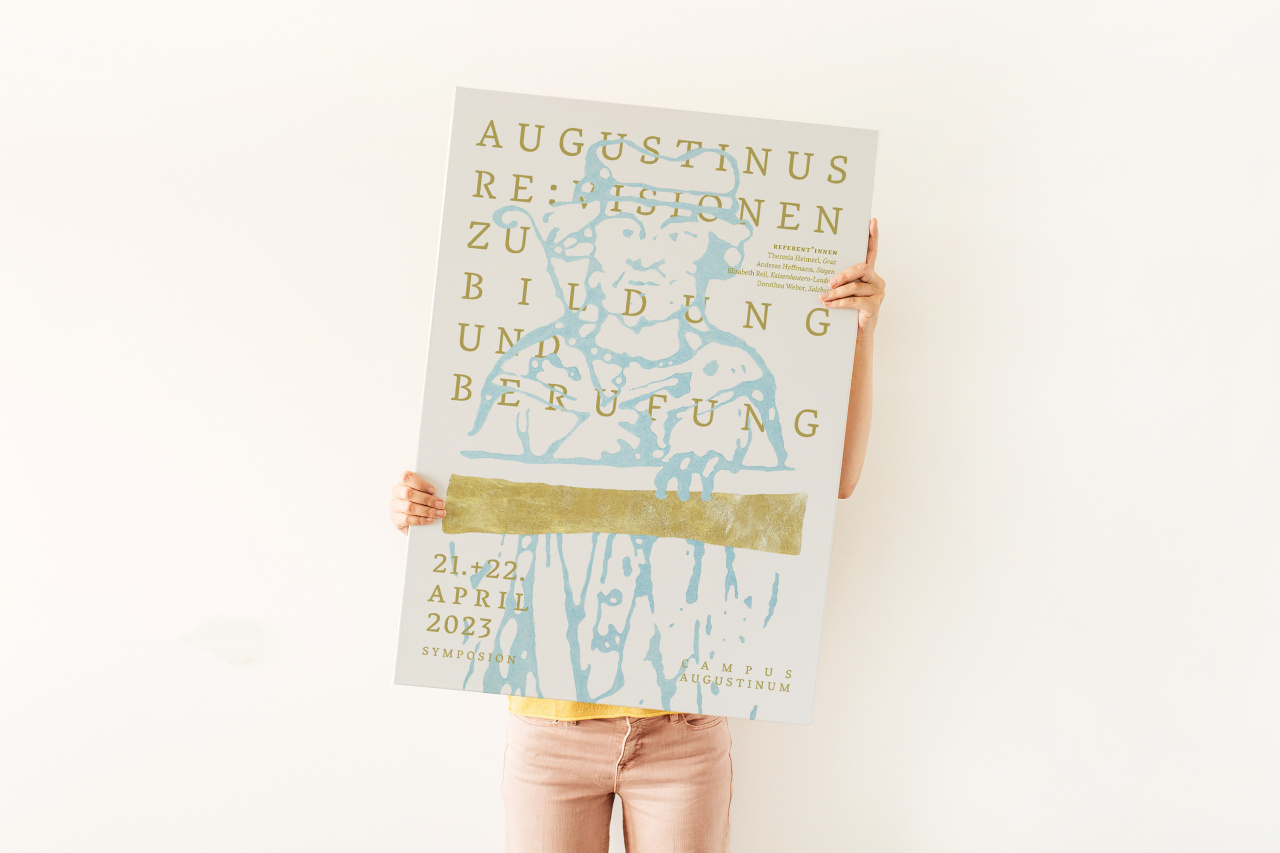 AUGUSTINUS
RE:VISIONEN
ZU
REFERENT*INNEN
Theresia Heimerl, Graz
Andreas Hoffmann, Siegen
Elisabeth Reil, Kaiserslautern-Landau
Dorothea Weber, Salzburg
BILDUNG
UND
BERUFUNG
21.+22.
APRIL
2023
SYMPOSION
CAMPUS
AUGUSTINUM